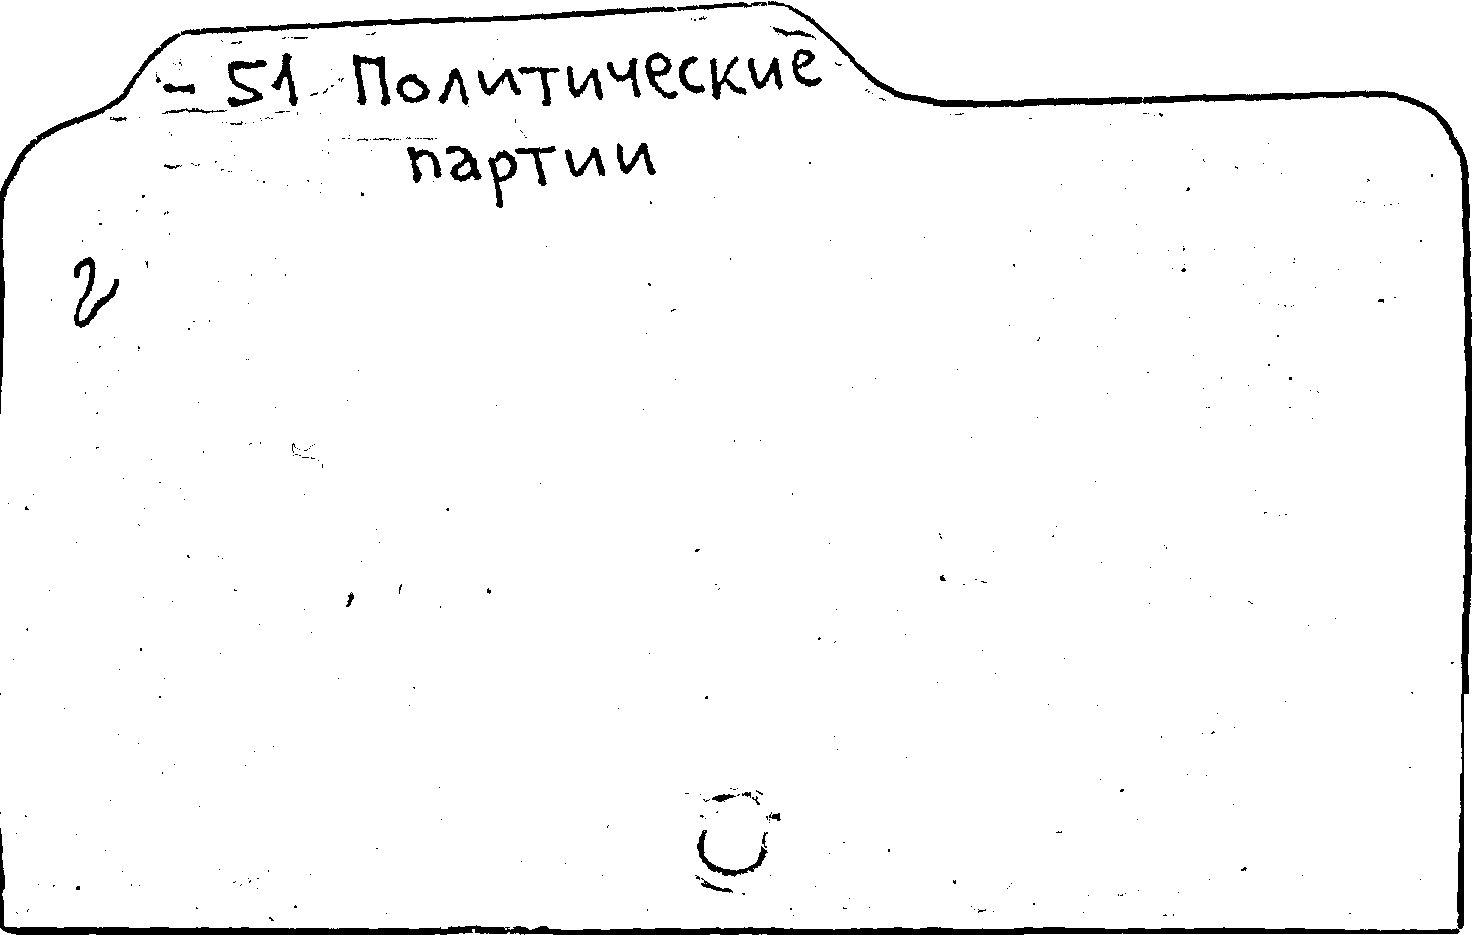 - 51 Политические
партии